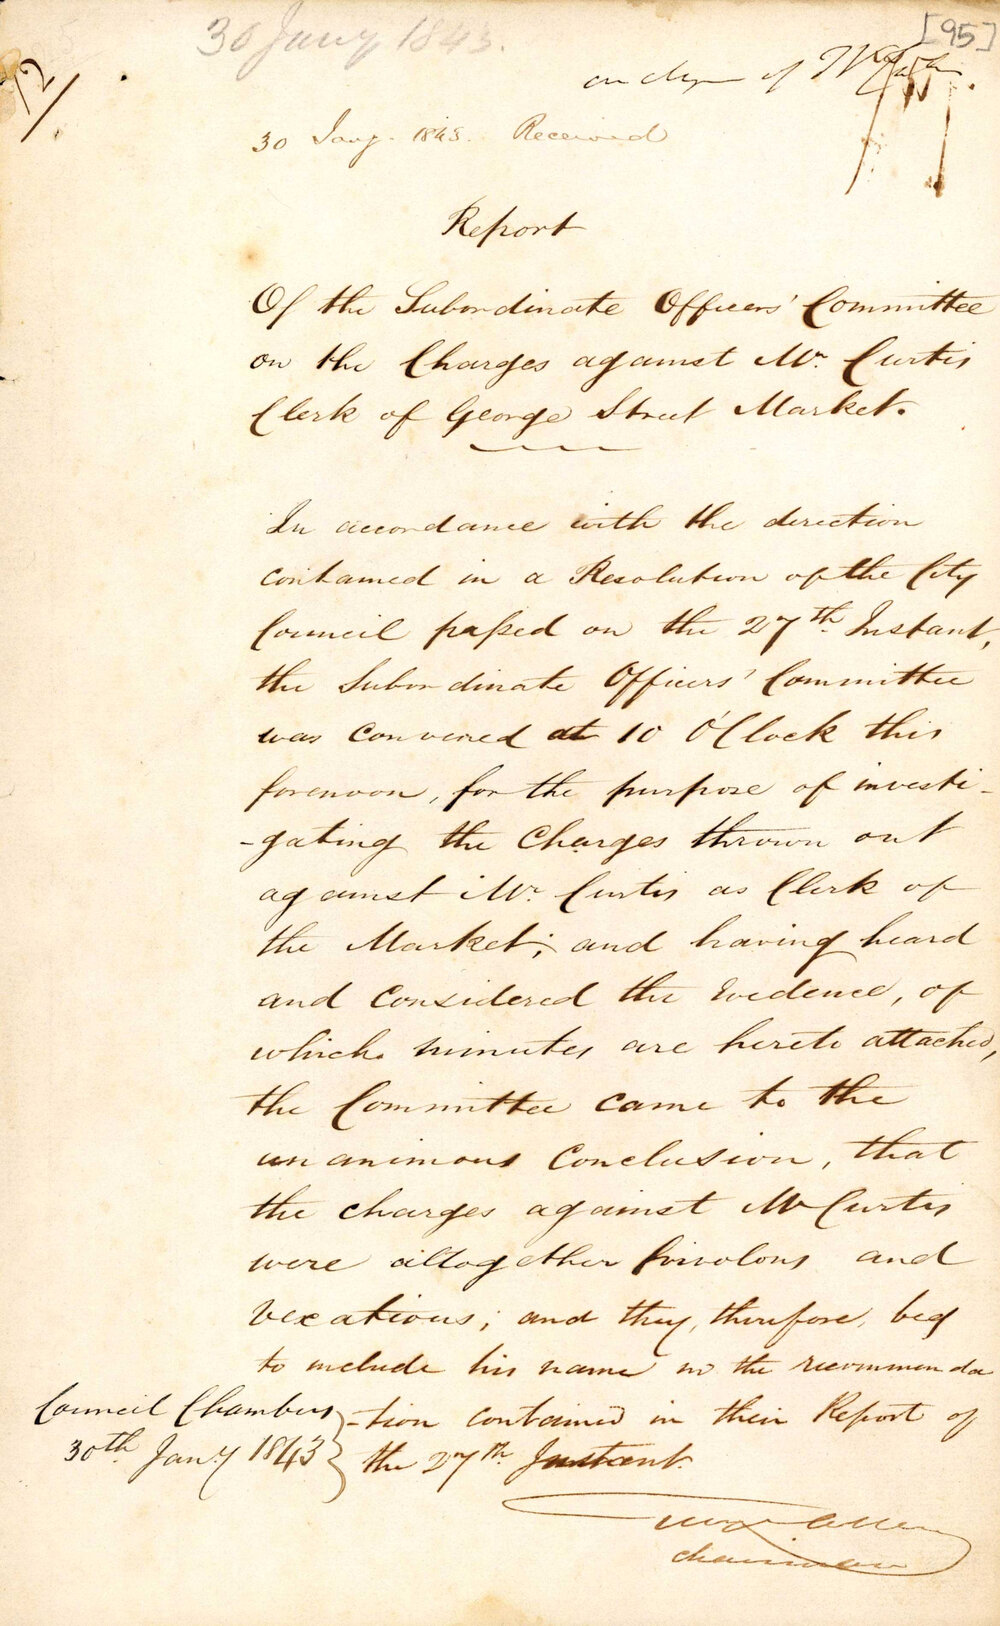 [95]
30 Jany 1843.
12
30 Jany. 1843. Received
Report
Of the Subordinate Officers' Committee
on the Charges against Mr. Curtis
Clerk of George Street Market.
In accordance with the direction
contained in a Resolution of the City
Council passed on the 27th. Instant,
the Subordinate Officers' Committee
was convened at 10 O'Clock this
forenoon, for the purpose of investi-
-gating the Charges thrown out
against Mr. Curtis as Clerk of
the Market; and having heard
and considered the Evidence, of
which minutes are hereto attached,
the Committee came to the
unanimous Conclusion, that
the charges against Mr Curtis
were altogether frivolous and
vexatious; and they, therefore, beg
to include his name in the recommenda
-tion contained in their Report of
the 27th. Instant.
Council Chambers
30th. Jany 1843
Chairman